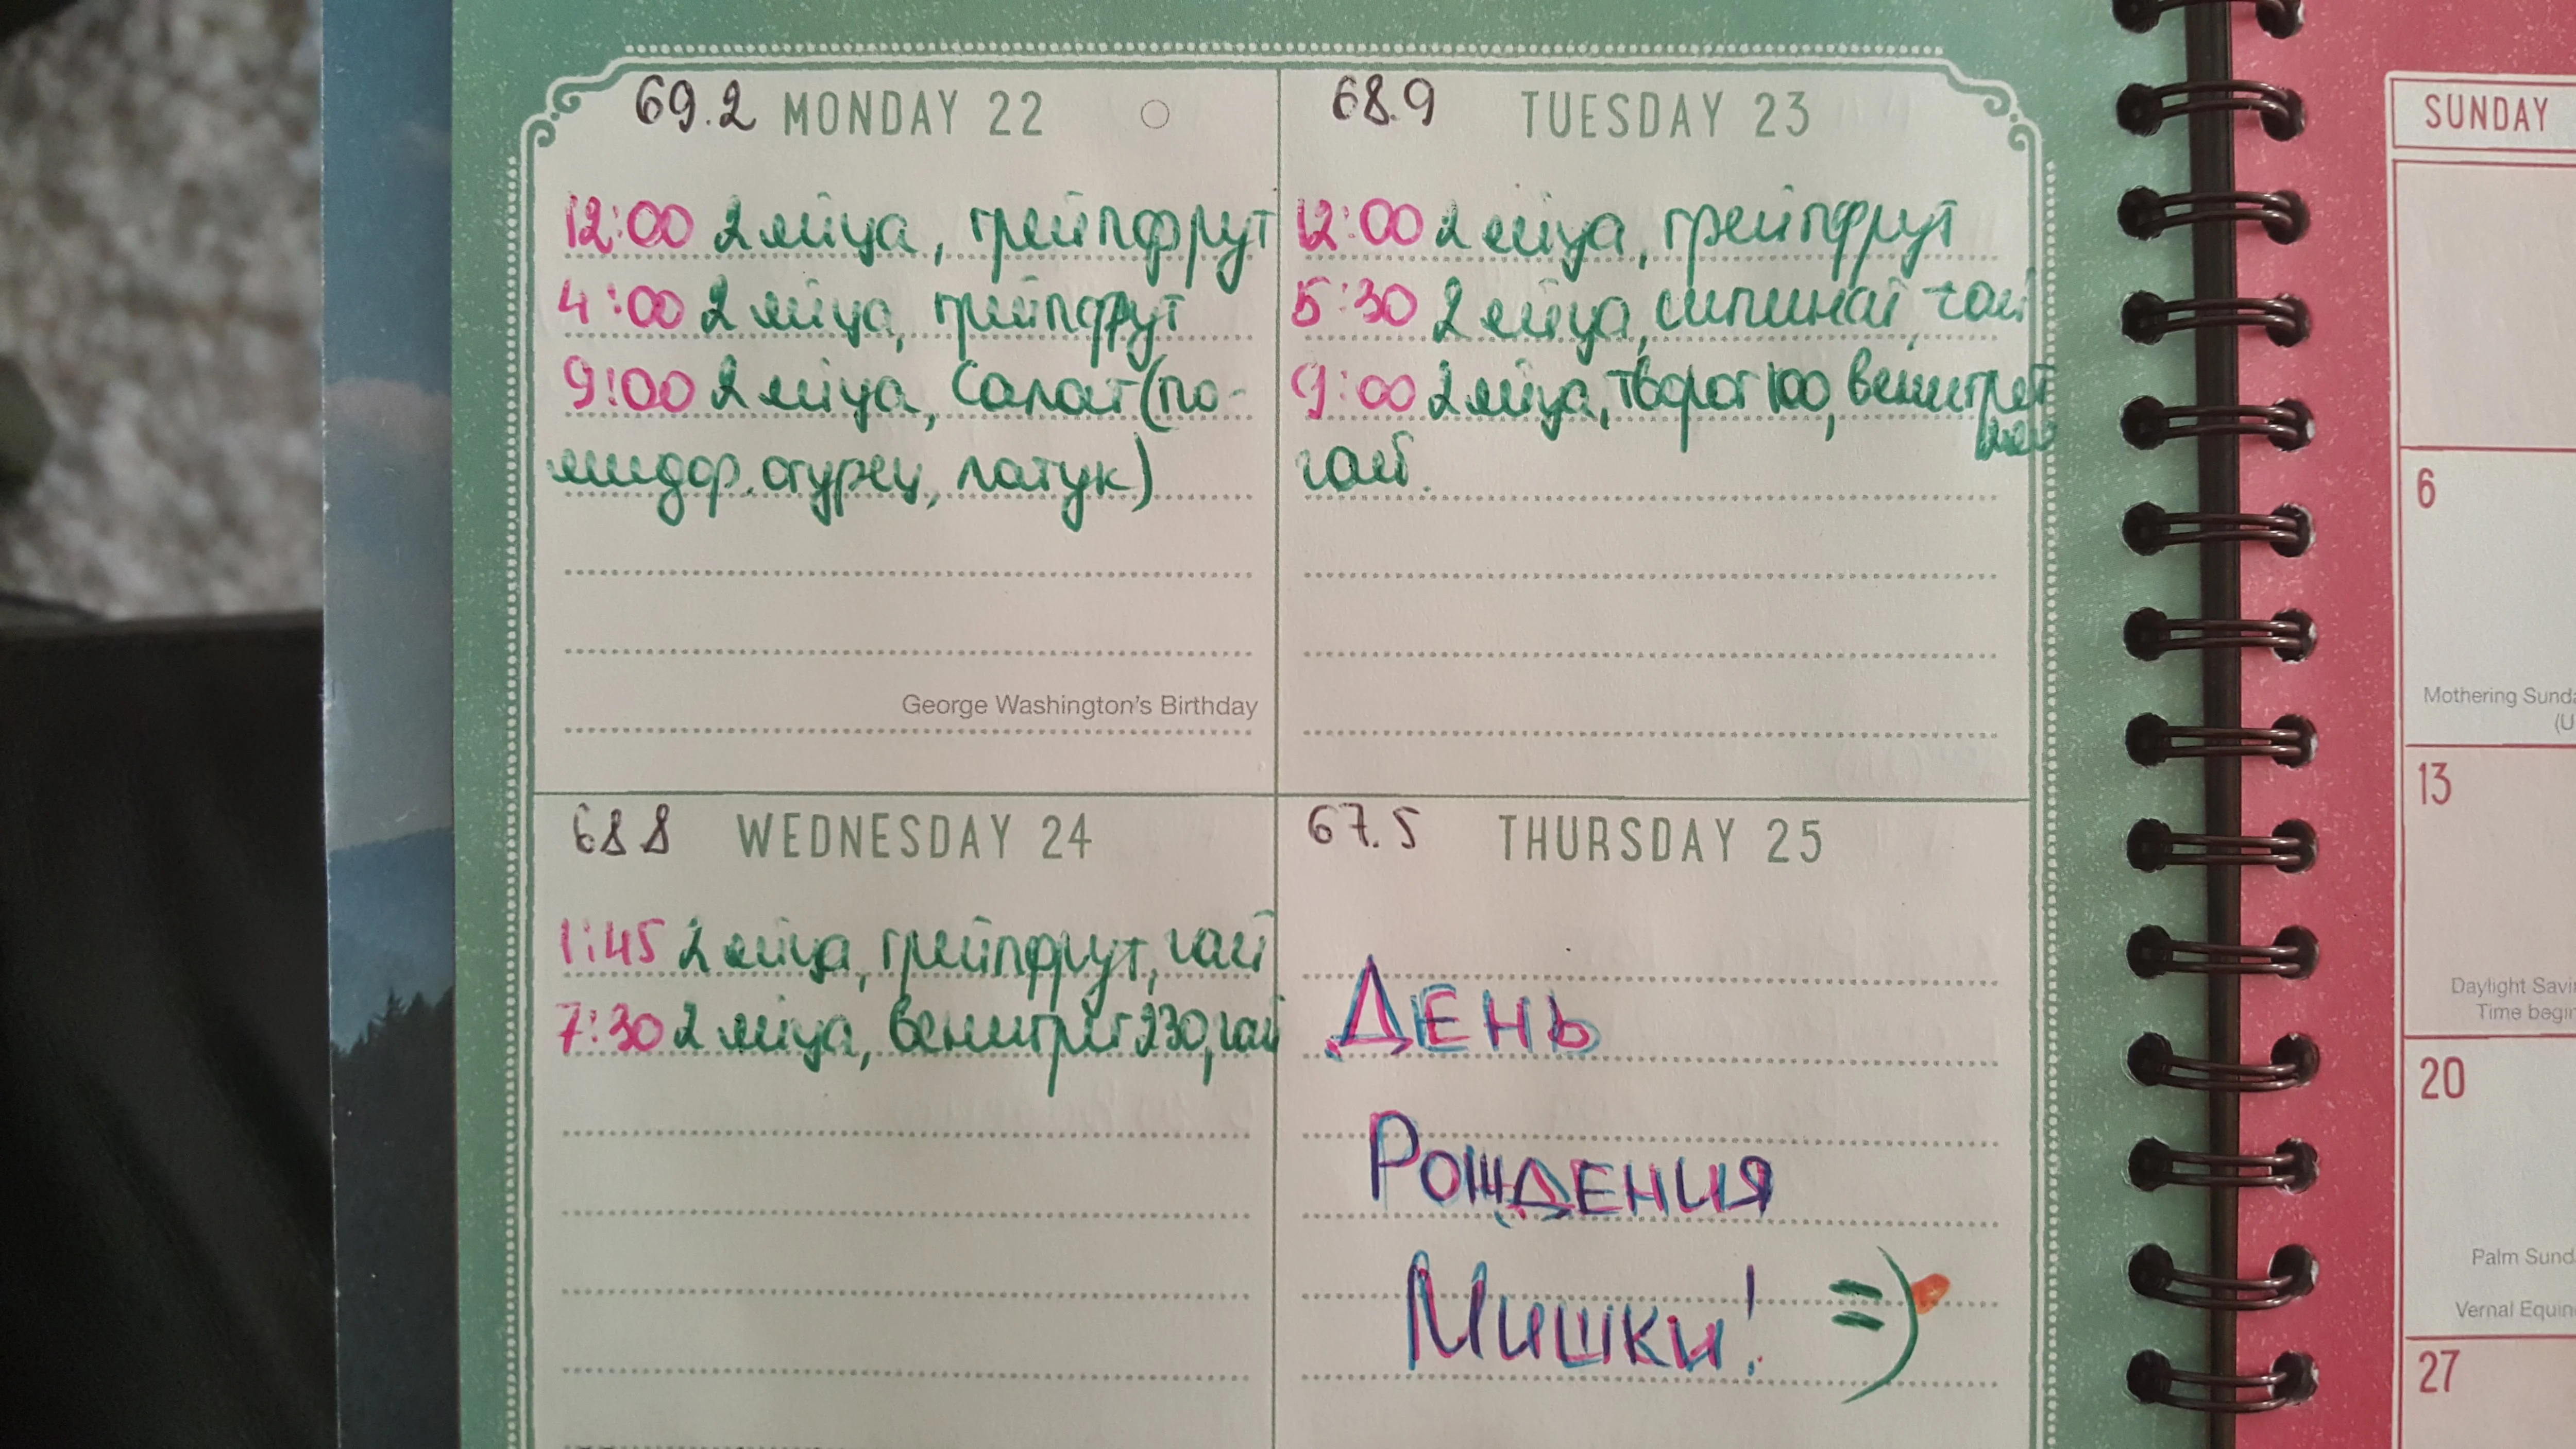 69.2 MONDAY 22
12:00 2 яйца, грейпфрут
4:00 2 яйца, грейпфрут
9:00 2 яйца, салат (по-
мидор, огурец, латук)
George Washington's Birthday
68.9 TUESDAY 23
12:00 2 яйца, грейпфрут
5:30 2 яйца, шпинат, чай
9:00 2 яйца, творог 100, венигрет
чай.
68.8 WEDNESDAY 24
1:45 2 яйца, грейпфрут, чай
7:30 2 яйца, венигрет 230, чай
67.5 THURSDAY 25
День
Рождения
Мишки! =)
SUNDAY
6
Mothering
13
Daylight
Time
20
Palm
Vernal
27